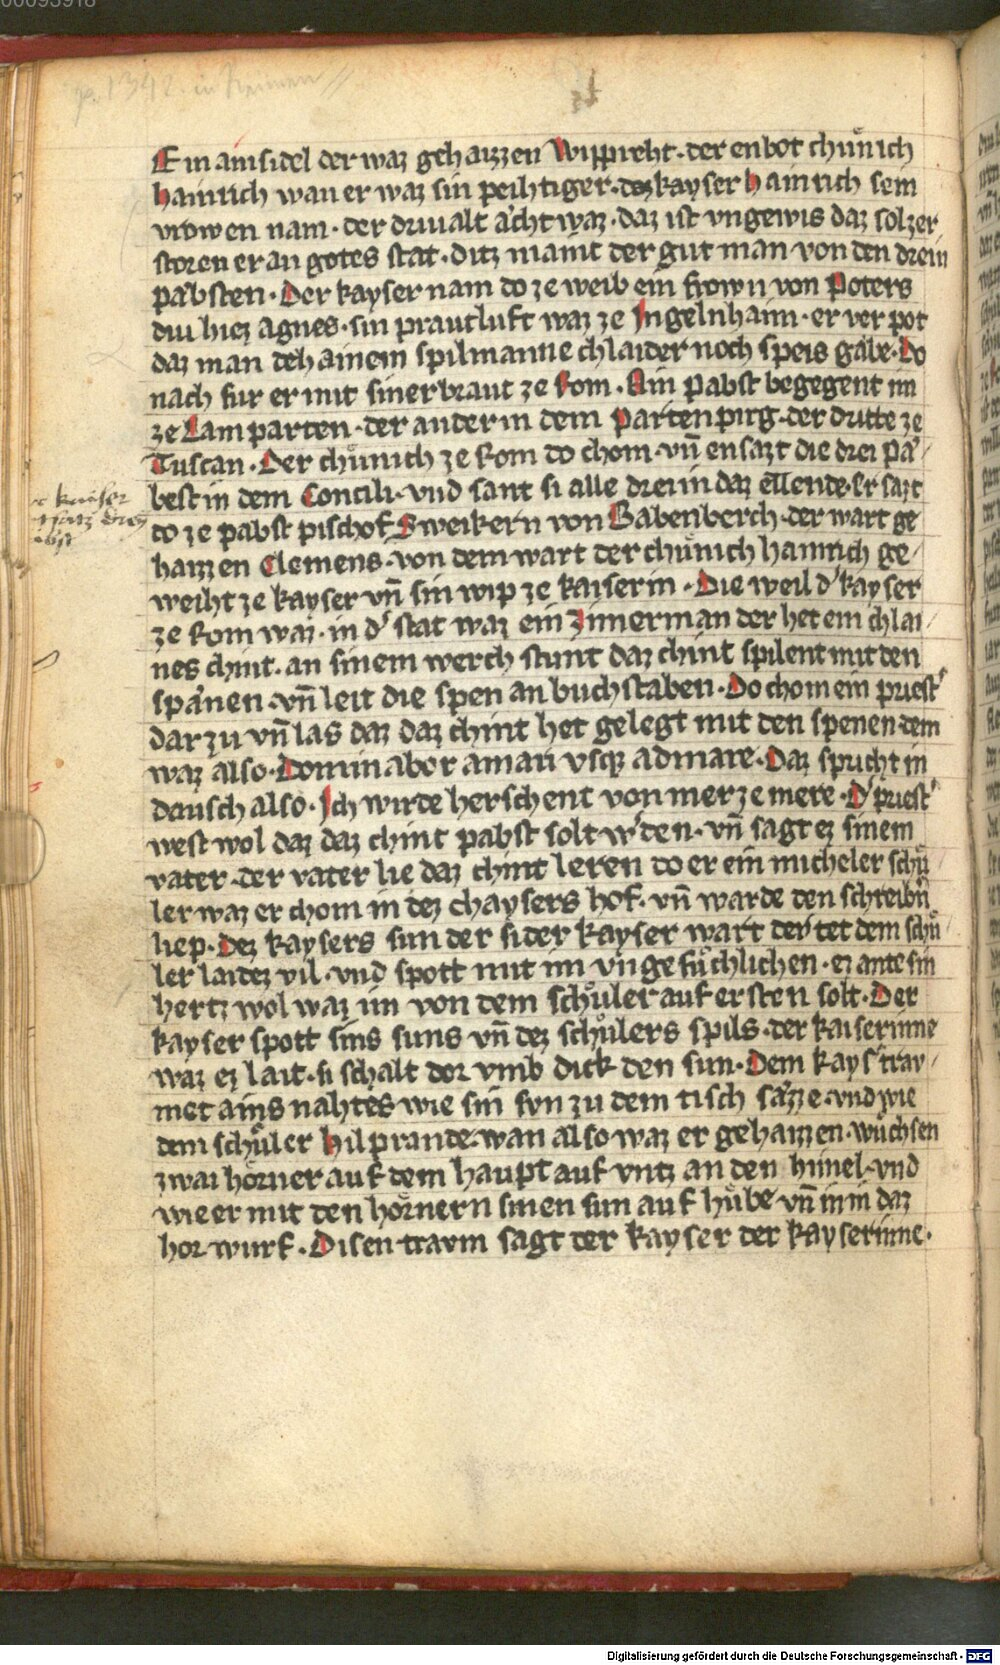 Ein ainsidel der waz gehaizzen Wippreht · der enbot chůnich
hainrich wan er waz sin peihtiger · dez kayser hainrich sem
vrowen nam · der driualt acht waz · daz ist vngewis daz solzer
storen er an gotes stat · ditz maint der gut man von den drein
pabsten · Der kayser nam do ze weib ein frown von Poters
diu hiez agnes · sin prautluft waz ze Ingelnhaim · er ver pot
daz man dehainem spilmanne chlaider noch speis gabe · Do
nach fur er mit siner braut ze Rom · Ain pabst begegent im
ze Lamparten · der ander in dem Partenpirg · der dritte ze
Tuscan · Der chůnich ze Rom do chom · vñ ensazt die drei pa /
best in dem Concili · vnd sant si alle drei in daz ellende · Er sazt
do ze pabst pischof Sweikern von Babenberch · der wart ge
haizzen Clemens · von dem wart der chůnich hainrich ge /
weiht ze kayser vñ sin wip ze kaiserin · Die weil d' kayser
ze Rom waz · in d' stat waz ein Zimerman der het ein chlai /
nes chint · an sinem werch stunt daz chint spilent mit den
spanen · vñ leit die spen an buchstaben · Do chom ein priest'
dar zu vñ las daz daz chint het gelegt mit den spenen dem
waz also · Dominabor amari vsq; ad mare · Daz spricht in
dausch also · Ich wirde herschent von mer ze mere · D' priest'
west wol daz daz chint pabst solt w'den · vñ sagt ez sinem
vater · der vater lie daz chint leren do er ein micheler schů /
ler waz er chom in dez chaysers hof · vñ warde den schreibn̄
liep · Dez kaysers sun der sider kayser wart der tet dem schů /
ler laidez vil · vnd spott mit im vngefůchlichen · ez ante sin
hertz wol waz im von dem schůler auf ersten solt · Der
kayser spott sins suns vñ dez schůlers spils · der kaiserinne
waz ez lait · si schalt dor vmb dick den sun · Dem kays' trav /
met ains nahtes wie sin svn zu dem tisch sazze · vnd wie
dem schůler hilprande · wan also waz er gehaizzen · wuchsen
zwai hörner auf dem haupt auf vntz an den himel · vnd
wie er mit den hörnern sinen sun auf hůbe vñ in in daz
hor wurf · Disen travm sagt der kayser der kayserinne ·
kaiser
satz drey